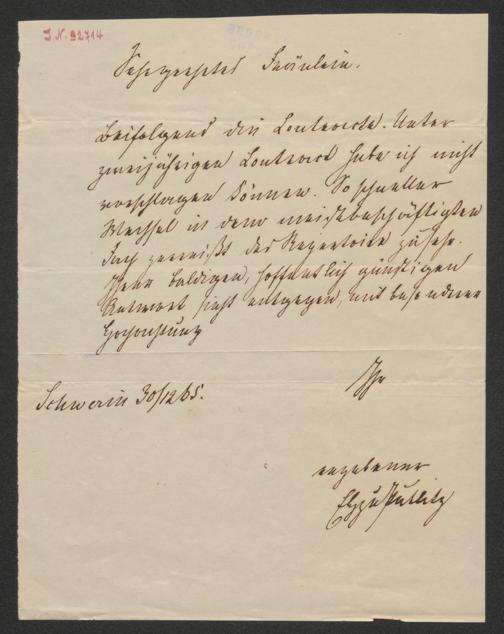 J.N. 92714
Sehr geehrtes Fräulein.
Beifolgend die Contracte. Unter
zweijährigen Contract habe ich nicht
vorschlagen können. So schneller
Wechsel in dem meistbeschäftigten
Fach zerreißt das Repertoire zu sehr.
Ihrer baldigen, hoffentlich günstigen
Antwort sieht entgegen, mit besonderer
Hochachtung
Ihr
Schwerin 30/12 65.
ergebener
zu Putlitz